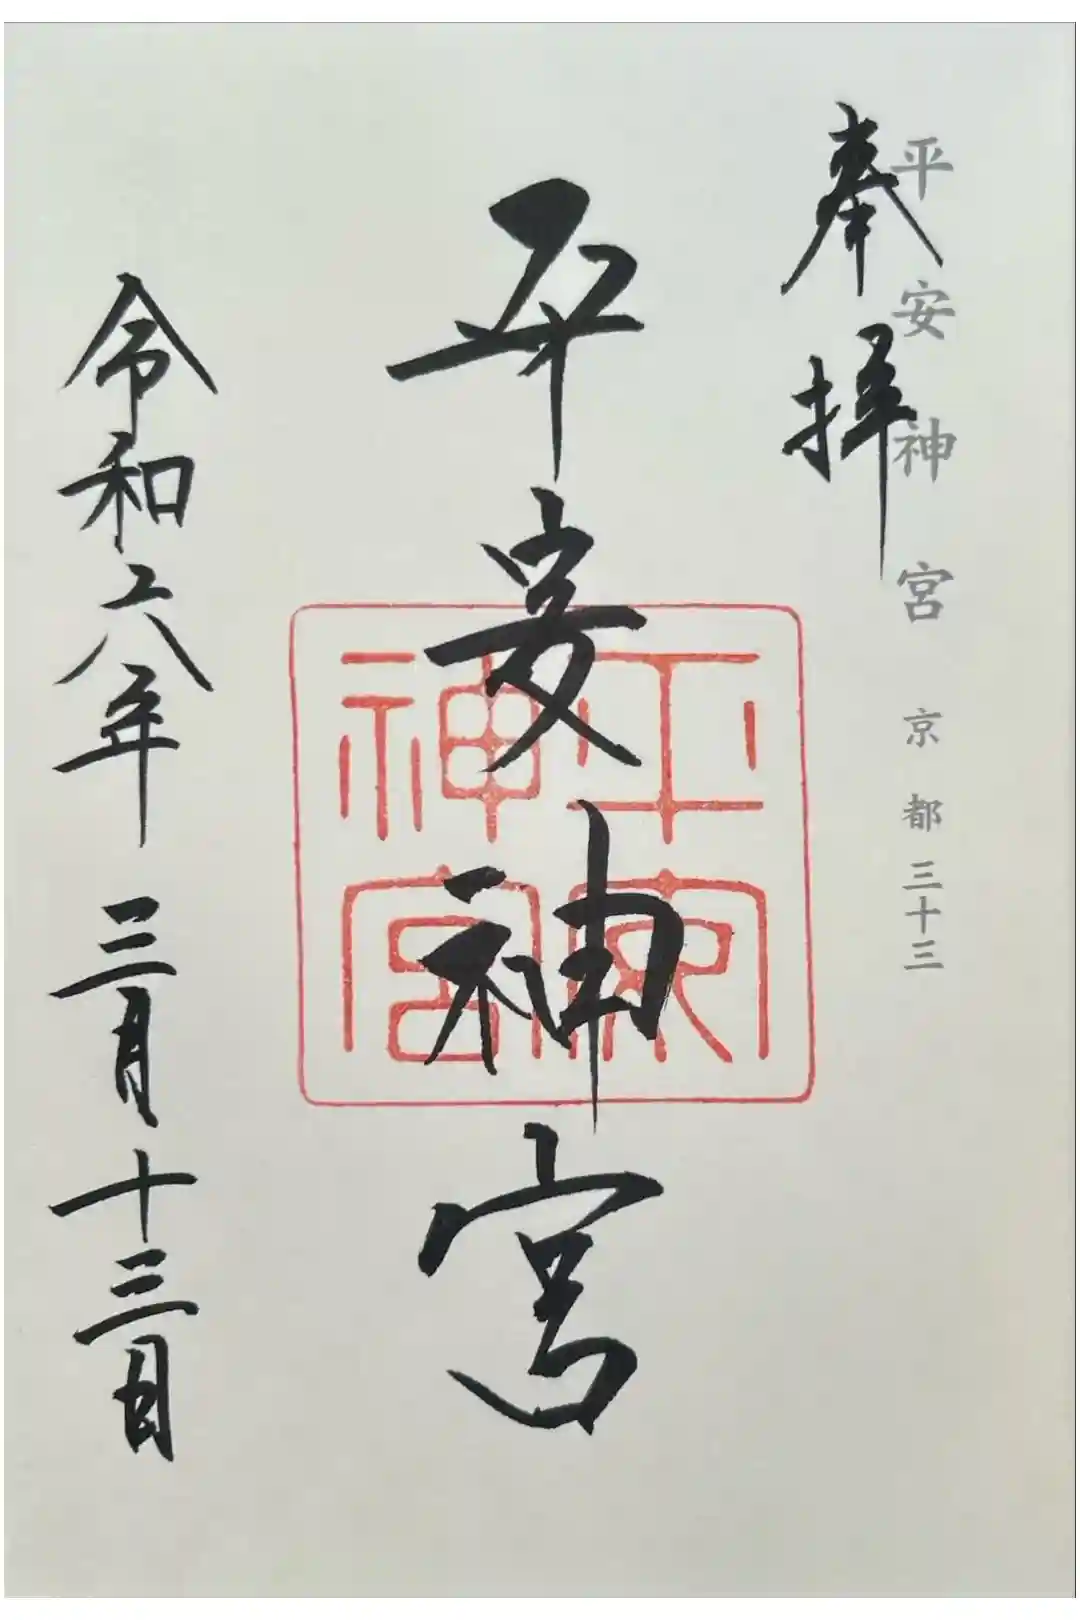 平安神宮 京都 三十三
奉拝
平安神宮
平安神宮
令和六年 三月十三日